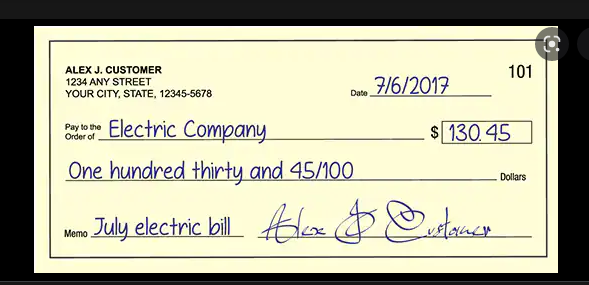 ALEX J. CUSTOMER
1234 ANY STREET
YOUR CITY, STATE, 12345-5678
101
Date 7/6/2017
Pay to the
Order of Electric Company $ 130.45
One hundred thirty and 45/100 Dollars
Memo July electric bill Alex J Customer